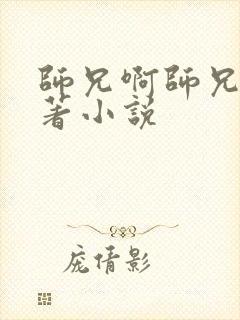 師兄啊師兄
著小說
庞倩影